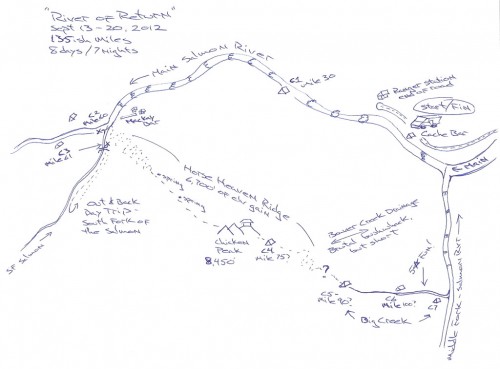 "River of Return"
Sept 13-20, 2012
135ish Miles
8 days / 7 Nights
Main Salmon River
C1
Mile 30
Ranger station
end of road
Start/Fin
Cache Bar
Main
C2
Mile 60
Mackay
Bar
C3
Mile 61
Out & Back
Day Trip -
South Fork of
the Salmon
SF Salmon
Horse Heaven Ridge
6,700' of elv gain
spring
spring
Chicken
Peak
8,450'
C4
Mile 75?
?
Beaver Creek Drainage
Brutal bushwhack,
but short
C5-
Mile 90?
C6
Mile 100?
C7
Big Creek
Middle Fork - Salmon River